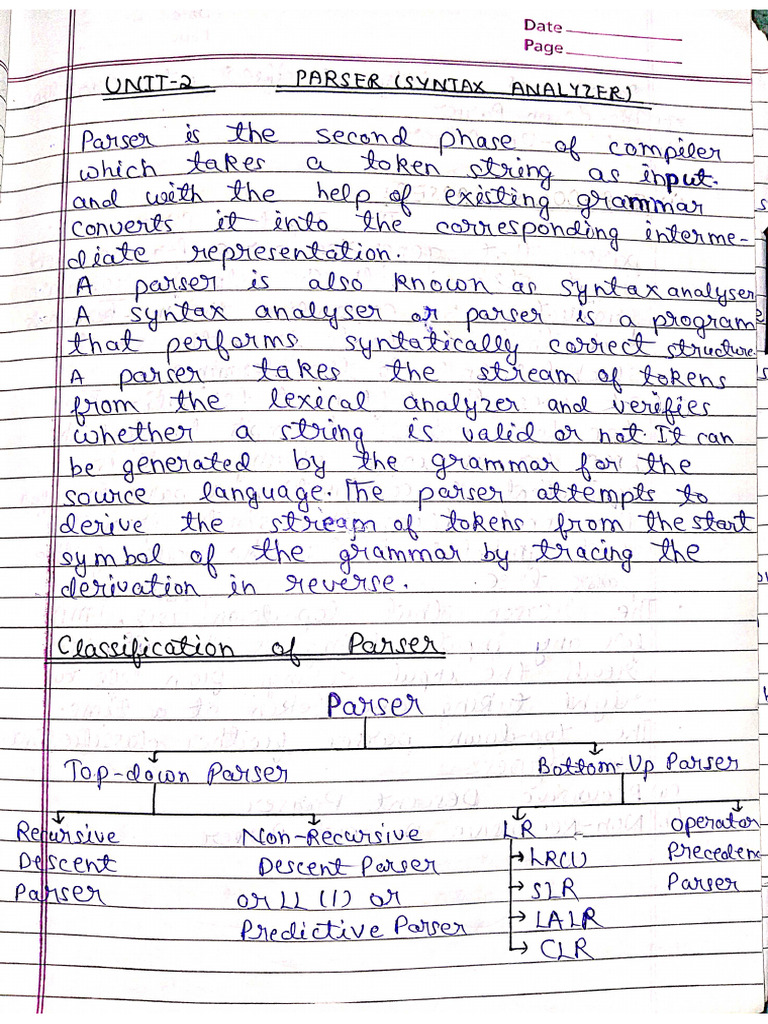 Date
Page
UNIT-2 PARSER (SYNTAX ANALYZER)
Parser is the second phase of compiler
which takes a token string as input.
and with the help of existing grammar
converts it into the corresponding interme-
diate representation.
A parser is also known as syntax analyser
A syntax analyser or parser is a program
that performs syntatically correct structure.
A parser takes the stream of tokens
from the lexical analyzer and verifies
whether a string is valid or not. It can
be generated by the grammar for the
source language. The parser attempts to
derive the stream of tokens from the start
symbol of the grammar by tracing the
derivation in reverse.
Classification of Parser
Parser
Top-down Parser Bottom-Up Parser
Recursive Non-Recursive LR Operator
Descent Descent Parser → LR(1) Preceden
Parser or LL (1) or → SLR Parser
Predictive Parser → LALR
→ CLR